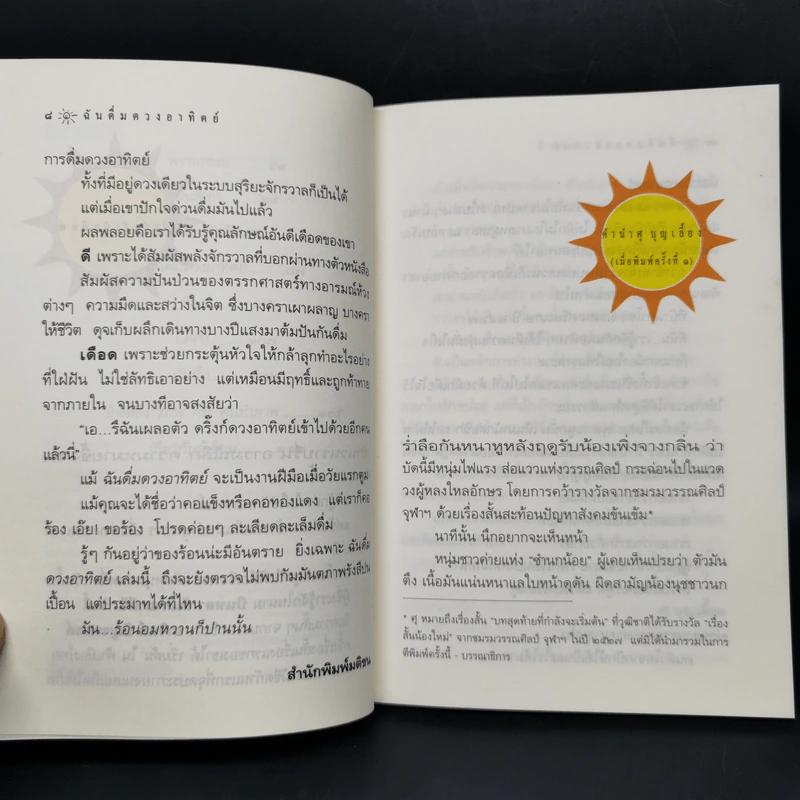 ๘ ฉันดื่มดวงอาทิตย์
การดื่มดวงอาทิตย์
ทั้งที่มีอยู่ดวงเดียวในระบบสุริยะจักรวาลก็เป็นได้
แต่เมื่อเขาปักใจด่วนดื่มมันไปแล้ว
ผลพลอยคือเราได้รับรู้คุณลักษณ์อันดีเดือดของเขา
ดี เพราะได้สัมผัสพลังจักรวาลที่บอกผ่านทางตัวหนังสือ
สัมผัสความปั่นป่วนของตรรกศาสตร์ทางอารมณ์ห้วง
ต่างๆ ความมืดและสว่างในจิต ซึ่งบางคราเผาผลาญ บางครา
ให้ชีวิต ดุจเก็บผลึกเดินทางบางปีแสงมาต้มปันกันดื่ม
เดือด เพราะช่วยกระตุ้นหัวใจให้กล้าลุกทำอะไรอย่าง
ที่ใฝ่ฝัน ไม่ใช่ลัทธิเอาอย่าง แต่เหมือนมีฤทธิ์และถูกท้าทาย
จากภายใน จนบางทีอาจสงสัยว่า
“เอ...รึฉันเผลอตัว ดริ๊งก์ดวงอาทิตย์เข้าไปด้วยอีกคน
แล้วนี่”
แม้ ฉันดื่มดวงอาทิตย์ จะเป็นงานฝีมือเมื่อวัยแรกดูม
แม้คุณจะได้ชื่อว่าคอแข็งหรือคอทองแดง แต่เราก็คอ
ร้อง เอ๊ย! ขอร้อง โปรดค่อยๆ ละเลียดละเล็มดื่ม
รู้ๆ กันอยู่ว่าของร้อนน่ะมีอันตราย ยิ่งเฉพาะ ฉันดื่ม
ดวงอาทิตย์ เล่มนี้ ถึงจะยังตรวจไม่พบกัมมันตภาพรังสีปน
เปื้อน แต่ประมาทได้ที่ไหน
มัน...ร้อนอมหวานก็ปานนั้น
สำนักพิมพ์มติชน
คำนำศุ บุญเลี้ยง
(เมื่อพิมพ์ครั้งที่ ๑)
ร่ำลือกันหนาหูหลังฤดูรับน้องเพิ่งจางกลิ่น ว่า
บัดนี้มีหนุ่มไฟแรง ส่อแววแห่งวรรณศิลป์ กระฉ่อนไปในแวด
วงผู้หลงใหลอักษร โดยการคว้ารางวัลจากชมรมวรรณศิลป์
จุฬาฯ ด้วยเรื่องสั้นสะท้อนปัญหาสังคมข้นเข้ม*
นาทีนั้น นึกอยากจะเห็นหน้า
หนุ่มชาวค่ายแห่ง “ซำนกน้อย” ผู้เคยเห็นเปรยว่า ตัวมัน
ตึง เนื้อมันแน่นหนาแลใบหน้าดุดัน ผิดสามัญน้องนุชชาวนก
* ศุ หมายถึงเรื่องสั้น “บทสุดท้ายที่กำลังจะเริ่มต้น” ที่วุฒิชาติได้รับรางวัล “เรื่อง
สั้นน้องใหม่” จากชมรมวรรณศิลป์ จุฬาฯ ในปี ๒๕๒๗ แต่มิได้นำมารวมในการ
ตีพิมพ์ครั้งนี้ - บรรณาธิการ